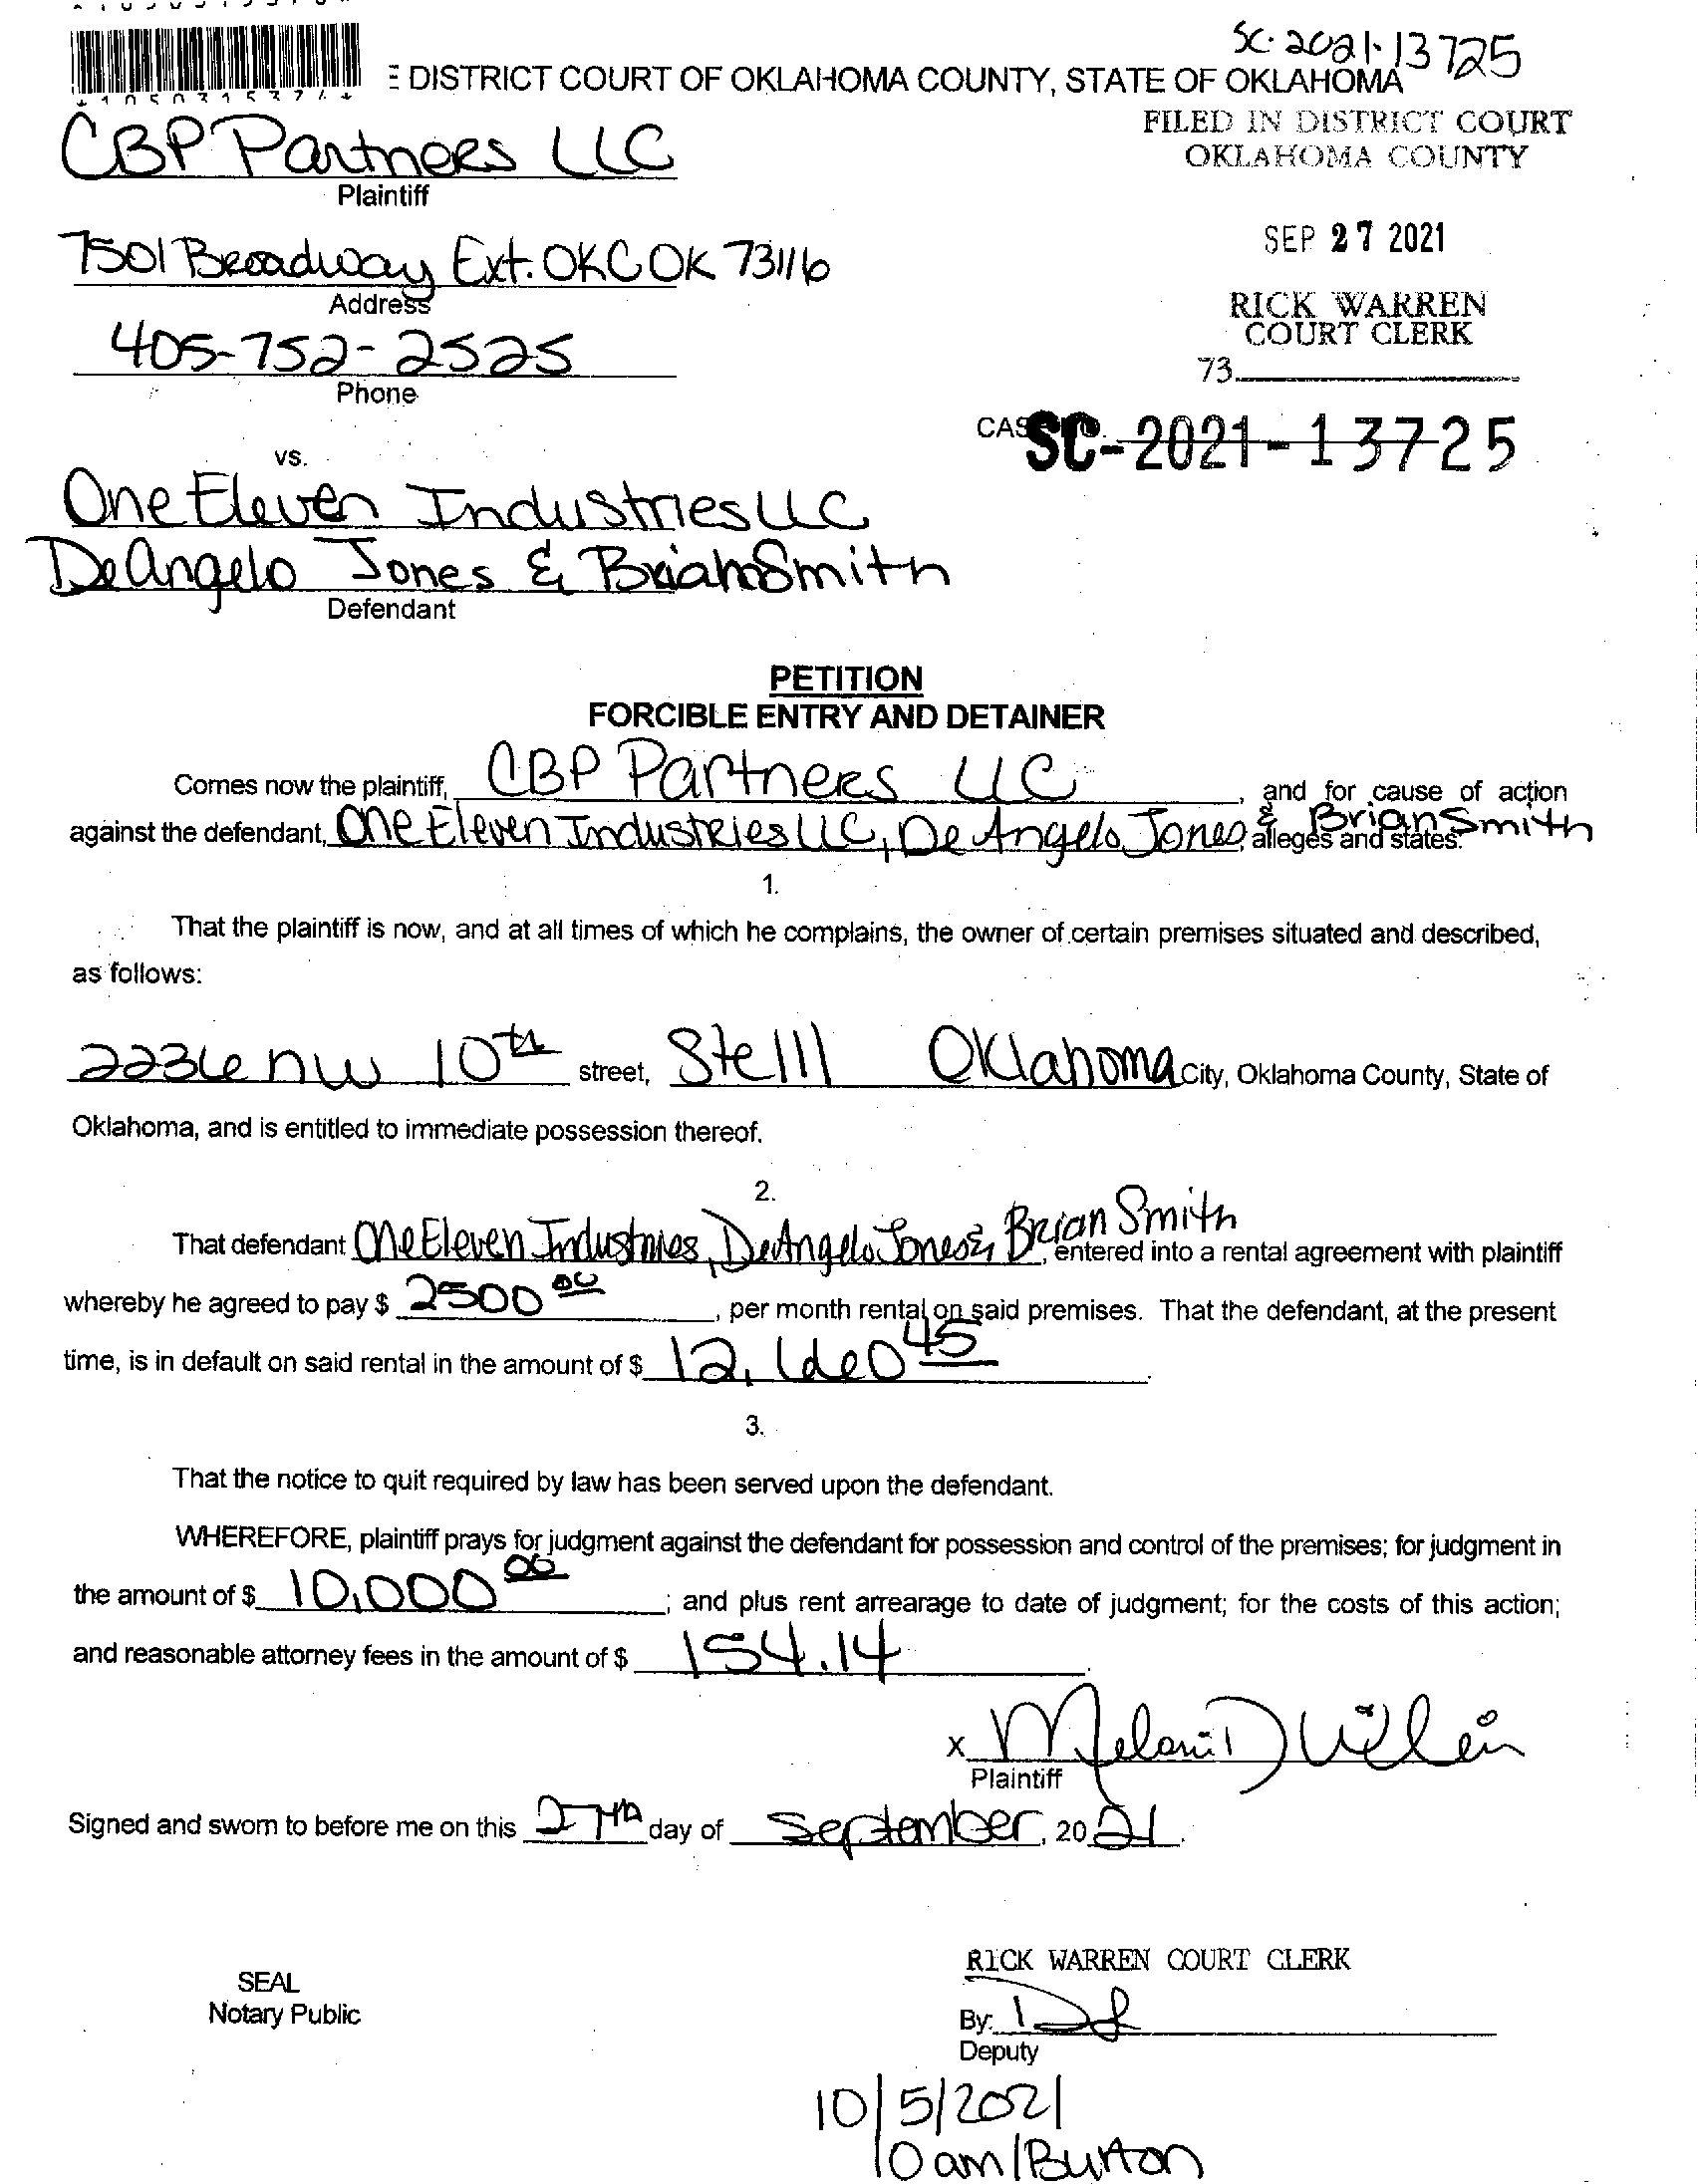 SC-2021-13725
E DISTRICT COURT OF OKLAHOMA COUNTY, STATE OF OKLAHOMA
FILED IN DISTRICT COURT
OKLAHOMA COUNTY
CBP Partners LLC
Plaintiff
SEP 27 2021
7501 Broadway Ext. OKC OK 73116
Address
RICK WARREN
COURT CLERK
405-752-2525
Phone
73
CAS SC-2021-13725
vs.
One Eleven Industries LLC
DeAngelo Jones & Brian Smith
Defendant
PETITION
FORCIBLE ENTRY AND DETAINER
Comes now the plaintiff, CBP Partners LLC, and for cause of action
against the defendant, One Eleven Industries LLC, DeAngelo Jones & Brian Smith alleges and states:
1.
That the plaintiff is now, and at all times of which he complains, the owner of certain premises situated and described,
as follows:
2236 NW 10th street, Ste 111 Oklahoma City, Oklahoma County, State of
Oklahoma, and is entitled to immediate possession thereof.
2.
That defendant One Eleven Industries, DeAngelo Jones & Brian Smith, entered into a rental agreement with plaintiff
whereby he agreed to pay $ 2500 00, per month rental on said premises. That the defendant, at the present
time, is in default on said rental in the amount of $ 12,660 45.
3.
That the notice to quit required by law has been served upon the defendant.
WHEREFORE, plaintiff prays for judgment against the defendant for possession and control of the premises; for judgment in
the amount of $ 10,000 00; and plus rent arrearage to date of judgment; for the costs of this action;
and reasonable attorney fees in the amount of $ 154.14.
X
Plaintiff
Signed and sworn to before me on this 27th day of September, 2021.
RICK WARREN COURT CLERK
SEAL
Notary Public
By:
Deputy
10/5/2021
10am/Burton